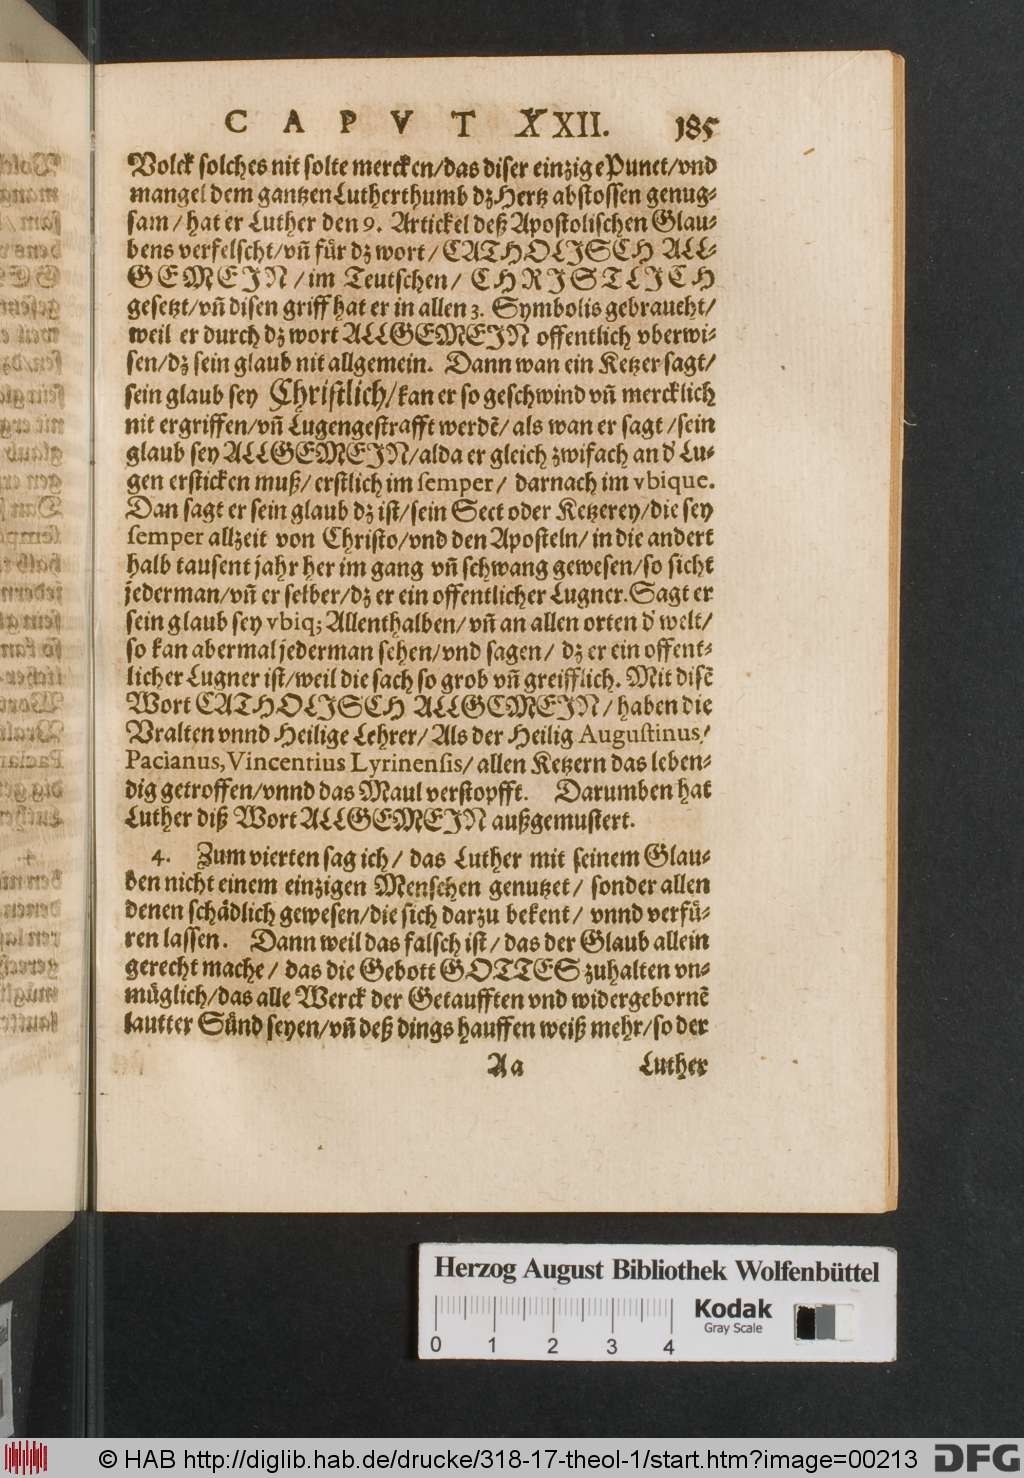 CAPVT XXII. 185
Volck solches nit solte mercken/das diser einzige Punct/vnd
mangel dem gantzen Lutherthumb dz Hertz abstossen genug-
sam/hat er Luther den 9. Artickel deß Apostolischen Glau-
bens verfelscht/vn̄ fůr dz wort/CATHOLISCH ALL-
GEMEIN/im Teutschen/CHRISTLICH
gesetzt/vn̄ disen griff hat er in allen 3. Symbolis gebraucht/
weil er durch dz wort ALLGEMEIN offentlich vberwi-
sen/dz sein glaub nit allgemein. Dann wan ein Ketzer sagt/
sein glaub sey Christlich/kan er so geschwind vn̄ mercklich
nit ergriffen/vn̄ Lugengestrafft werdē/als wan er sagt/sein
glaub sey ALLGEMEIN/alda er gleich zwifach an d' Lu-
gen ersticken muß/erstlich im semper/darnach im vbique.
Dan sagt er sein glaub dz ist/sein Sect oder Ketzerey/die sey
semper allzeit von Christo/vnd den Aposteln/in die andert
halb tausent jahr her im gang vn̄ schwang gewesen/so sicht
jederman/vn̄ er selber/dz er ein offentlicher Lugner. Sagt er
sein glaub sey vbiq; Allenthalben/vn̄ an allen orten d' welt/
so kan abermal jederman sehen/vnd sagen/dz er ein offent-
licher Lugner ist/weil die sach so grob vn̄ greifflich. Mit disē
Wort CATHOLISCH ALLGEMEIN/haben die
Vralten vnnd Heilige Lehrer/Als der Heilig Augustinus/
Pacianus, Vincentius Lyrinensis/allen Ketzern das leben-
dig getroffen/vnnd das Maul verstopfft. Darumben hat
Luther diß Wort ALLGEMEIN außgemustert.
4. Zum vierten sag ich/das Luther mit seinem Glau-
ben nicht einem einzigen Menschen genutzet/sonder allen
denen schådlich gewesen/die sich darzu bekent/vnnd verfů-
ren lassen. Dann weil das falsch ist/das der Glaub allein
gerecht mache/das die Gebott GOTTES zuhalten vn-
můglich/das alle Werck der Getaufften vnd widergebornē
lautter Sůnd seyen/vn̄ deß dings hauffen weiß mehr/so der
Aa Luther
Herzog August Bibliothek Wolfenbüttel
0 1 2 3 4
Kodak
Gray Scale
© HAB http://diglib.hab.de/drucke/318-17-theol-1/start.htm?image=00213 DFG